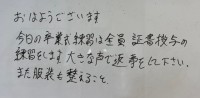 おはようございます
今日の卒業式練習は全員 証書授与の
練習をします 大きな声で返事をして下さい。
また服装も整えること